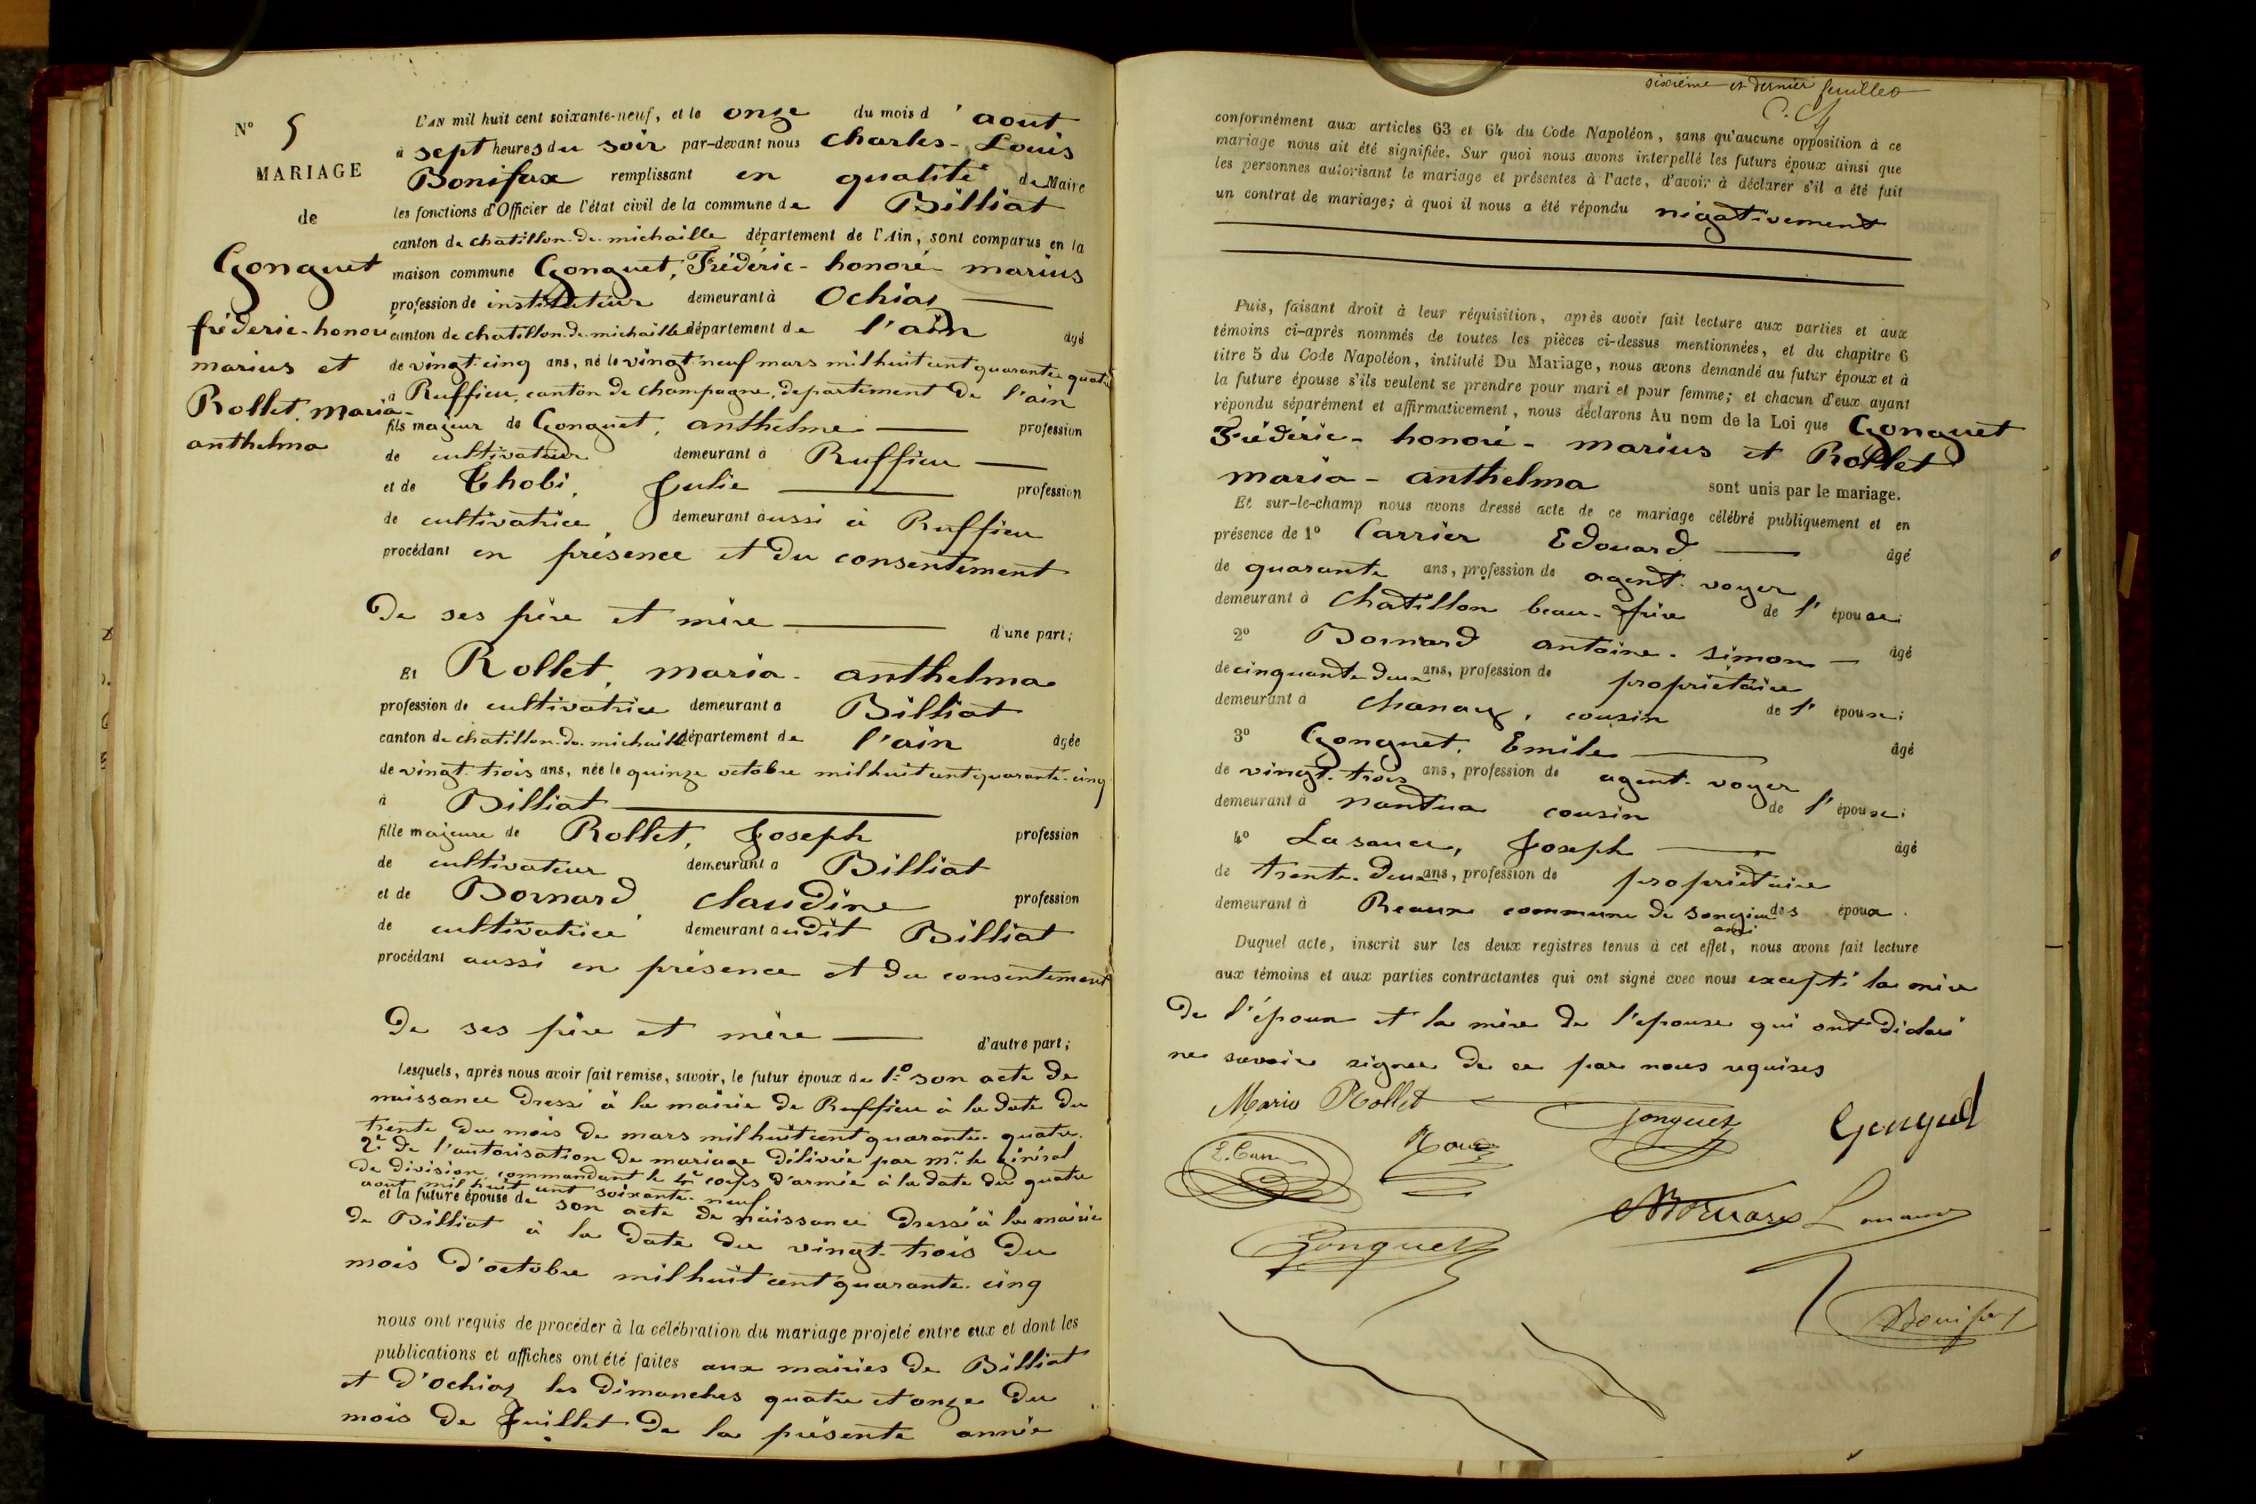 N° 5
MARIAGE
de
Gonguet
fréderic-honoré
marius et
Rollet, maria-
anthelma
L'AN mil huit cent soixante-neuf, et le onze du mois d'aout
à sept heures du soir par-devant nous Charles-Louis
Bonifax remplissant en qualité de Maire
les fonctions d'Officier de l'état civil de la commune de Billiat
canton de chatillon-de-michaille département de l'Ain, sont comparus en la
maison commune Gonguet, Frédéric-honoré-marius
profession de instituteur demeurant à Ochiaz
canton de chatillon-de-michaille département de l'ain âgé
de vingt-cinq ans, né le vingt-neuf mars mil huit cent quarante quatre
à Ruffieu, canton de champagne, departement de l'ain
fils majeur de Gonguet, anthelme profession
de cultivateur demeurant à Ruffieu
et de Thobi, Julie profession
de cultivatrice, demeurant aussi à Ruffieu
procédant en présence et du consentement
de ses père et mère d'une part;
Et Rollet, maria-anthelma
profession de cultivatrice demeurant à Billiat
canton de chatillon-de-michaille département de l'ain âgée
de vingt-trois ans, née le quinze octobre mil huit cent quarante-cinq
à Billiat
fille majeure de Rollet, Joseph profession
de cultivateur demeurant à Billiat
et de Bornard claudine profession
de cultivatrice demeurant audit Billiat
procédant aussi en présence et du consentement
de ses père et mère d'autre part;
Lesquels, après nous avoir fait remise, savoir, le futur époux de 1.° son acte de
naissance dressé à la mairie de Ruffieu à la date du
trente du mois de mars mil huit cent quarante-quatre.
2.° de l'autorisation de mariage délivrée par mr. le Général
de division commandant le 4e corps d'armée à la date du quatre
aout mil huit cent soixante-neuf
et la future épouse de son acte de naissance dressé à la mairie
de Billiat à la date du vingt-trois du
mois d'octobre mil huit cent quarante-cinq
nous ont requis de procéder à la célébration du mariage projeté entre eux et dont les
publications et affiches ont été faites aux mairies de Billiat
et d'Ochiaz les dimanches quatre et onze du
mois de Juillet de la présente année
sixième et dernier feuillet
conformément aux articles 63 et 64 du Code Napoléon, sans qu'aucune opposition à ce
mariage nous ait été signifiée. Sur quoi nous avons interpellé les futurs époux ainsi que
les personnes autorisant le mariage et présentes à l'acte, d'avoir à déclarer s'il a été fait
un contrat de mariage; à quoi il nous a été répondu négativement
Puis, faisant droit à leur réquisition, après avoir fait lecture aux parties et aux
témoins ci-après nommés de toutes les pièces ci-dessus mentionnées, et du chapitre 6
titre 5 du Code Napoléon, intitulé Du Mariage, nous avons demandé au futur époux et à
la future épouse s'ils veulent se prendre pour mari et pour femme; et chacun d'eux ayant
répondu séparément et affirmativement, nous déclarons Au nom de la Loi que Gonguet
Frédéric-honoré-marius et Rollet
maria-anthelma sont unis par le mariage.
Et sur-le-champ nous avons dressé acte de ce mariage célébré publiquement et en
présence de 1° Carrier Edouard âgé
de quarante ans, profession de agent-voyer
demeurant à Chatillon beau-frère de l'épouse;
2° Bornard antoine-simon âgé
de cinquante deux ans, profession de propriétaire
demeurant à Chanay, cousin de l'épouse;
3° Gonguet, Emile âgé
de vingt-trois ans, profession de agent-voyer
demeurant à nantua cousin de l'épouse;
4° Joseph âgé
de trente-deux ans, profession de propriétaire
demeurant à Reaux commune de songieu des époux.
ami
Duquel acte, inscrit sur les deux registres tenus à cet effet, nous avons fait lecture
aux témoins et aux parties contractantes qui ont signé avec nous excepté la mère
de l'époux et la mère de l'epouse qui ont déclaré
ne savoir signer de ce par nous requises
Maria Rollet
Gonguet
Gonguet
Gonguet
Bonifax